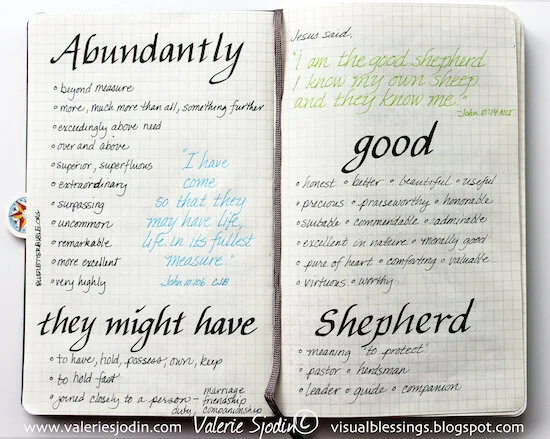 Abundantly
• beyond measure
• more, much more than all, something further
• exceedingly above need
• over and above
• superior, superfluous
• extraordinary
• surpassing
• uncommon
• remarkable
• more excellent
• very highly
"I have
come
so that they
may have life,
life in its fullest
measure."
John 10:10b CJB
BLUELETTERBIBLE.ORG
they might have
• to have, hold, possess, own, keep
• to hold fast
• joined closely to a person - marriage
friendship
duty, companionship
Jesus said,
"I am the good shepherd
I know my own sheep
and they know me."
-John 10:14 NLT
good
• honest • better • beautiful • useful
• precious • praiseworthy • honorable
• suitable • commendable • admirable
• excellent in nature • morally good
• pure of heart • comforting • valuable
• virtuous • worthy
Shepherd
• meaning 'to protect'
• pastor • herdsman
• leader • guide • companion
www.valeriesjodin.com Valerie Sjodin © visualblessings.blogspot.com